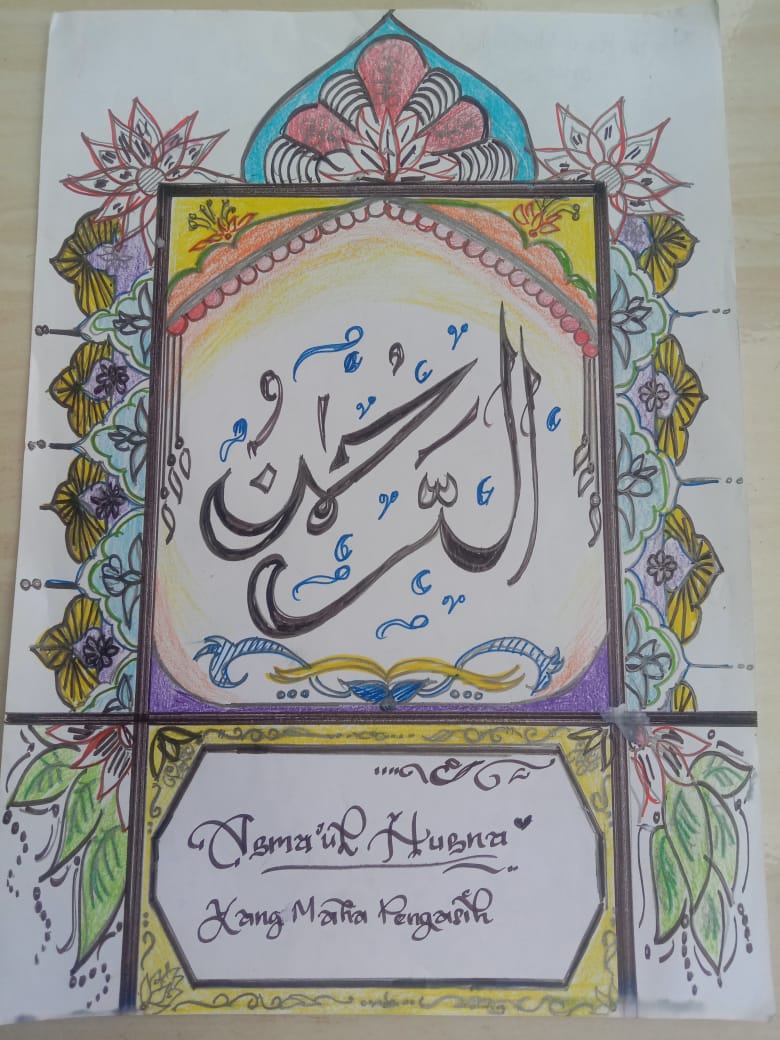 الرحمن
Asma'ul Husna
Yang Maha Pengasih